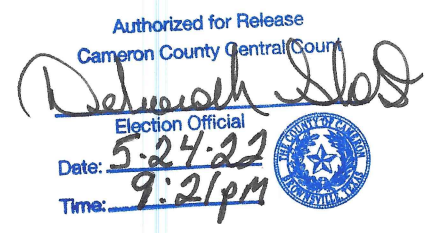 Authorized for Release
Cameron County Central Count
Deborah
Election Official
Date: 5-24-22
Time: 9:21pm
THE COUNTY OF CAMERON
BROWNSVILLE, TEXAS